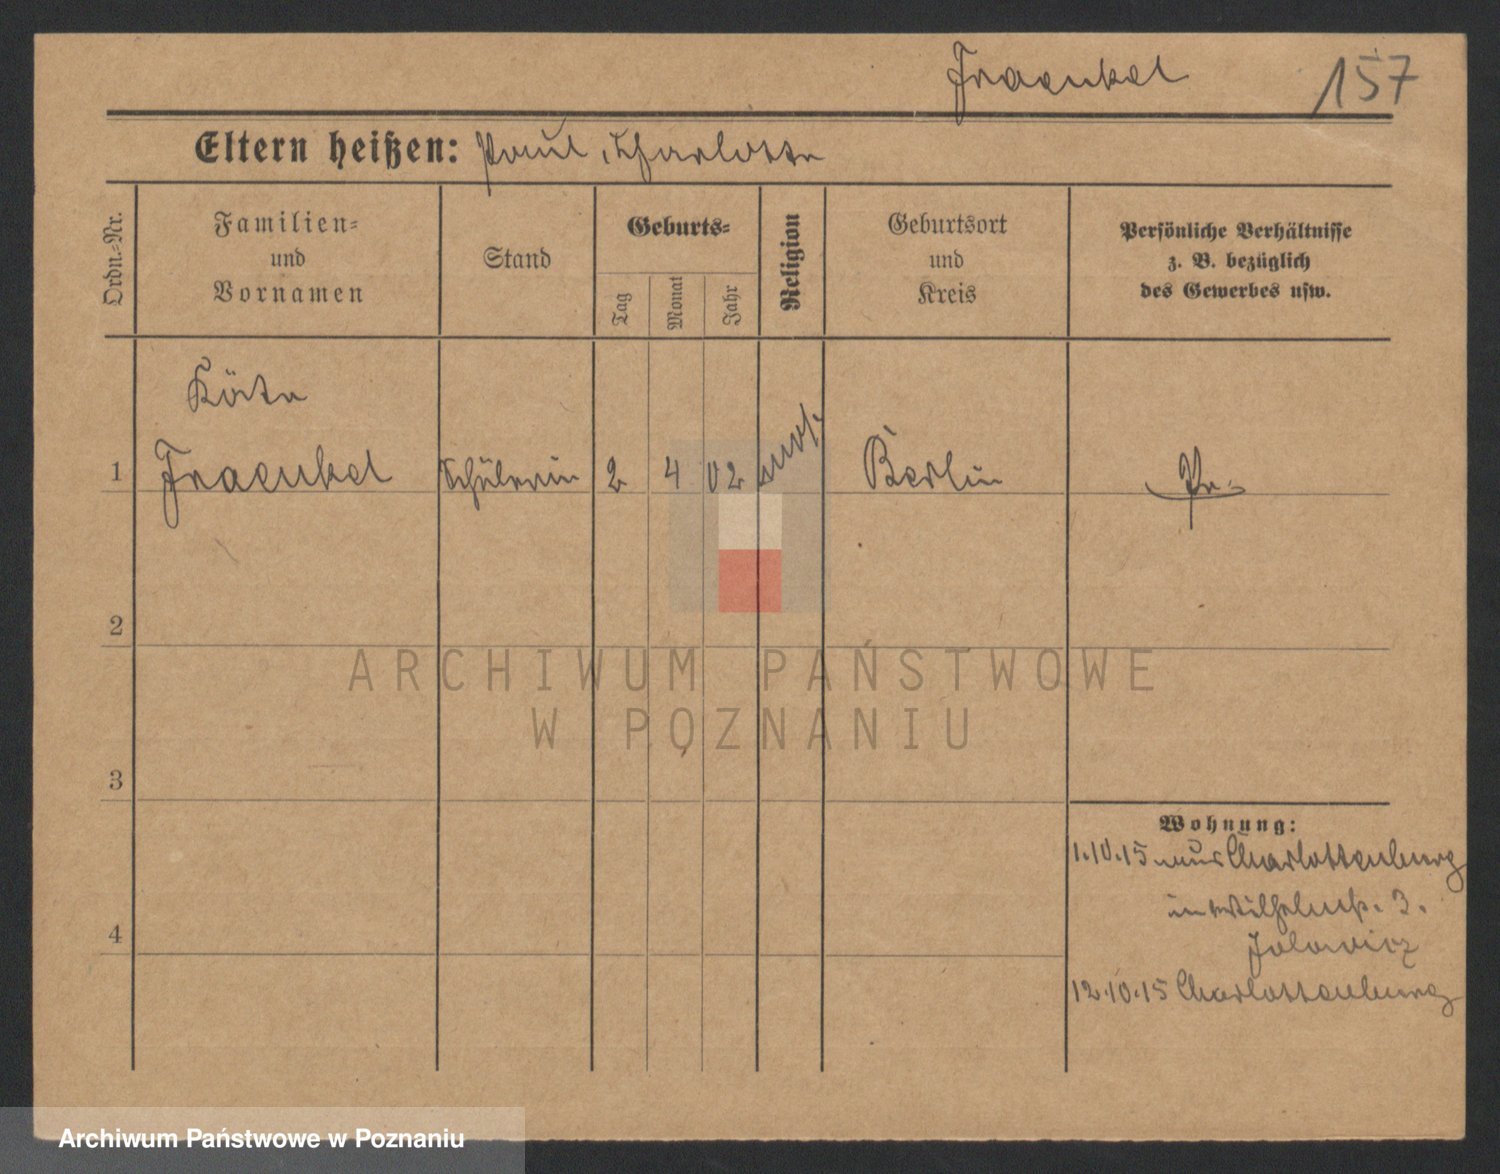 Fraenkel 157
Eltern heißen: Paul, Charlotte
Ordn.-Nr.
Familien-
und
Vornamen
Stand
Geburts-
Tag
Monat
Jahr
Religion
Geburtsort
und
Kreis
Persönliche Verhältnisse
z. B. bezüglich
des Gewerbes usw.
Käte
1 Fraenkel Schülerin 2 4 02 mos. Berlin Pr.
2
3
4
Wohnung:
1.10.15 aus Charlottenburg
in Wilhelmstr. 3.
Jolowicz
12.10.15 Charlottenburg
ARCHIWUM PAŃSTWOWE
W POZNANIU
Archiwum Państwowe w Poznaniu